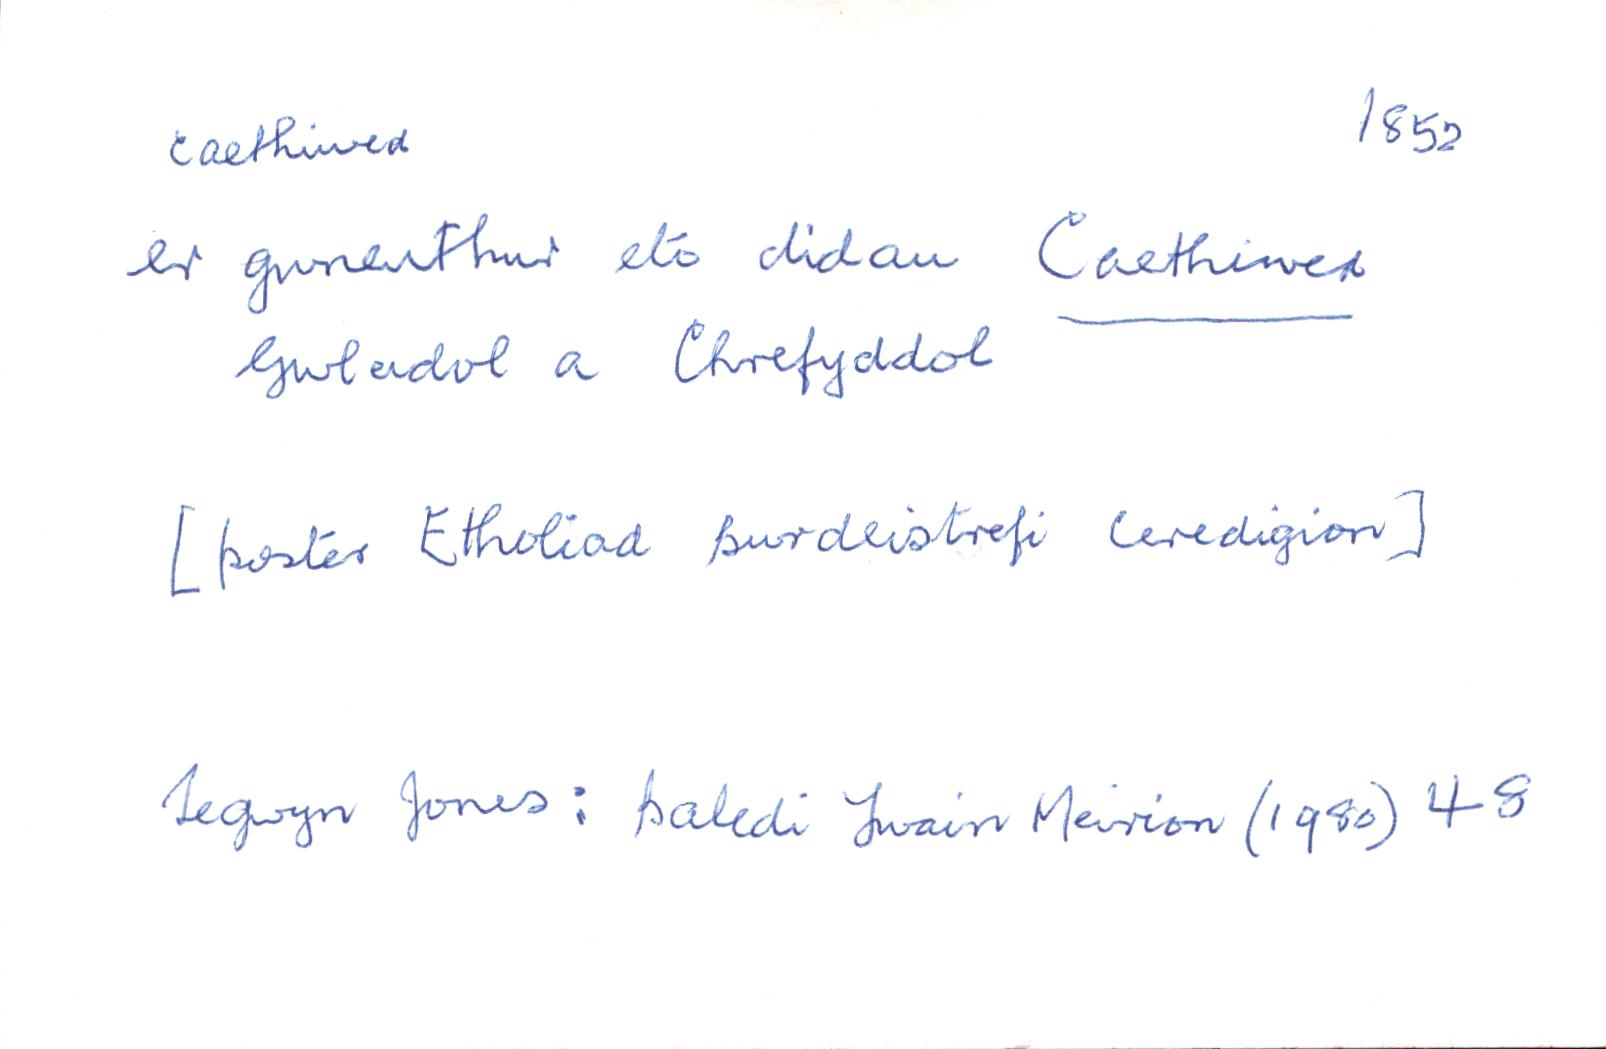 caethiwed 1852
er gwneuthur eto didau Caethiwed
Gwladol a Chrefyddol
[poster Etholiad Bwrdeistrefi Ceredigion]
Tegwyn Jones: Baledi Ywain Meirion (1980) 48